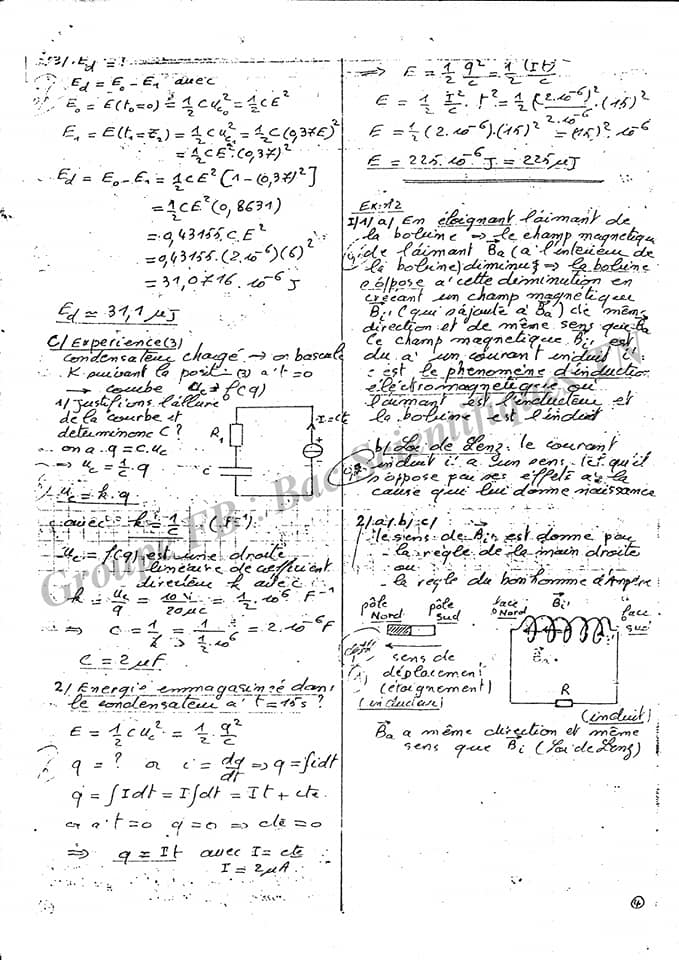 3/. Ed = ?
Ed = E0 - E1 avec
E0 = E(t0=0) = 1/2 C uc0² = 1/2 CE²
E1 = E(t1=τ2) = 1/2 C uc² = 1/2 C(0,37E)²
= 1/2 CE²(0,37)²
Ed = E0 - E1 = 1/2 CE² [1-(0,37)²]
= 1/2 CE²(0,8631)
= 0,43155.C.E²
= 0,43155.(2.10⁻⁶)(6)²
= 31,0716.10⁻⁶ J
Ed ≃ 31,1 μJ
C/ Experience(3)
condensateur chargé → on bascule
K suivant la posit: (3) à t=0
→ courbe uc = f(q)
1/ Justifions l'allure
de la courbe et
determinons C?
on a q = C.uc
→ uc = 1/C . q
uc = k.q
avec k = 1/C : (F⁻¹)
uc = f(q) est une droite
linéaire de coefficient
directeur k avec
k = uc/q = 10 V/20μC = 1/2.10⁶ F⁻¹
⇒ C = 1/k = 1/(1/2.10⁶) = 2.10⁻⁶F
C = 2μF
2/ Energie emmagasinée dans
le condensateur à t = 15s ?
E = 1/2 C uc² = 1/2 q²/C
q = ? or i = dq/dt ⇒ q = ∫idt
q = ∫Idt = I∫dt = It + cte
or à t=0 q=0 ⇒ cte = 0
⇒ q = It avec I = cte
I = 2μA
R1
C
I=cte
⇒ E = 1/2 q²/C = 1/2 (It)²/C
E = 1/2 I²/C . t² = 1/2 (2.10⁻⁶)²/2.10⁻⁶ . (15)²
E = 1/2 (2.10⁻⁶).(15)² = (15)².10⁻⁶
E = 225.10⁻⁶ J = 225μJ
Ex:12
I/1/a/ En éloignant l'aimant de
la bobine → le champ magnetique
de l'aimant Ba (à l'interieur de
la bobine) diminue ⇒ la bobine
s'oppose a' cette diminution en
créant un champ magnétique
Bi (qui s'ajoute à Ba) de même
direction et de même sens que Ba
Ce champ magnetique Bi est
du a' un courant induit i:
c'est le phenomène d'induction
électromagnetique où
l'aimant est l'inducteur et
la bobine est l'induit
b/ Loi de Lenz: le courant
induit i a un sens tel qu'il
s'oppose par ses effets a' la
cause qui lui donne naissance
2/a/b/c/
le sens de Bi est donne par
- la règle de la main droite
ou
- la règle du bonhomme d'Ampère
pôle Nord pôle Sud face Nord Bi face Sud
Ba
sens de
déplacement
(éloignement)
(inducteur)
R
(induit)
Ba a même direction et même
sens que Bi (Loi de Lenz)
4
Groupe FB : Bac Scientifiques TN